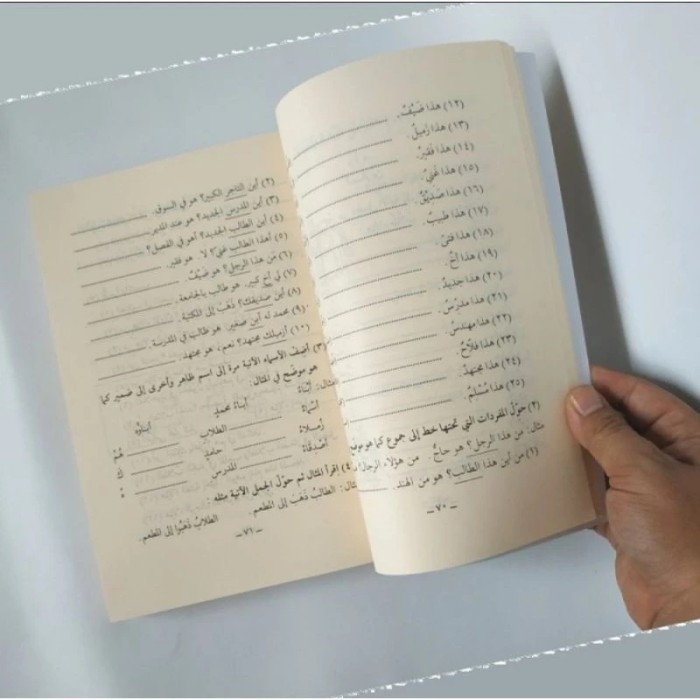 (١٢) هذا ضَيْفٌ.
(١٣) هذا زَمِيلٌ.
(١٤) هذا فَقِيرٌ.
(١٥) هذا غَنِيٌّ.
(١٦) هذا صَدِيْقٌ.
(١٧) هذا طَبِيبٌ.
(١٨) هذا فَتًى.
(١٩) هذا أَخٌ.
(٢٠) هذا جَدِيدٌ.
(٢١) هذا مدَرِّسٌ.
(٢٢) هذا مهندِسٌ.
(٢٣) هذا فَلَّاحٌ.
(٢٤) هذا مجتهِدٌ.
(٢٥) هذا مُسْلِمٌ.
(٢) حوّل المفردات التي تحتها خط إلى جموع كما هو موضح
مثال: من هذا الرجل؟ هو حاجٌّ. من هؤلاء الرجال؟
(١) من أين هذا الطالب؟ هو من الهند.
ــ ٧٠ ــ
(٢) أين التاجر الكبير؟ هو في السوق.
(٣) أين المدرس الجديد؟ هو عند المدير.
(٤) أين الطالب الجديد؟ أهو في الفصل؟
(٥) أهذا الطالب غنيٌّ؟ لا. هو فقير.
(٦) مَن هذا الرجل؟ هو ضيْفٌ.
(٧) لي أخ كبير. هو طالب بالجامعة.
(٨) أين صديقك؟ ذهَبَ إلى المكتبة.
(٩) محمد له أبن صغير. هو طالب في المدرسة.
(١٠) أزميلك مجتهد؟ نعم، هو مجتهد.
(٣) أضِف الأسماء الآتية مرة إلى اسم ظاهر وأخرى إلى ضمير كما
هو موضح في المثال:
المثال: أبْنَاءٌ أبناءُ محمدٍ أبناؤه
أسْمَاءٌ الطلاب هُمْ
زُملاءُ حامد كَ
أصْدِقَاءُ المدرس هُ
(٤) اقرأ المثال ثم حوّل الجمل الآتية مثله:
مثال: الطالبُ ذَهَبَ إلى المطعم. الطلابُ ذَهَبُوا إلى المطعم.
ــ ٧١ ــ